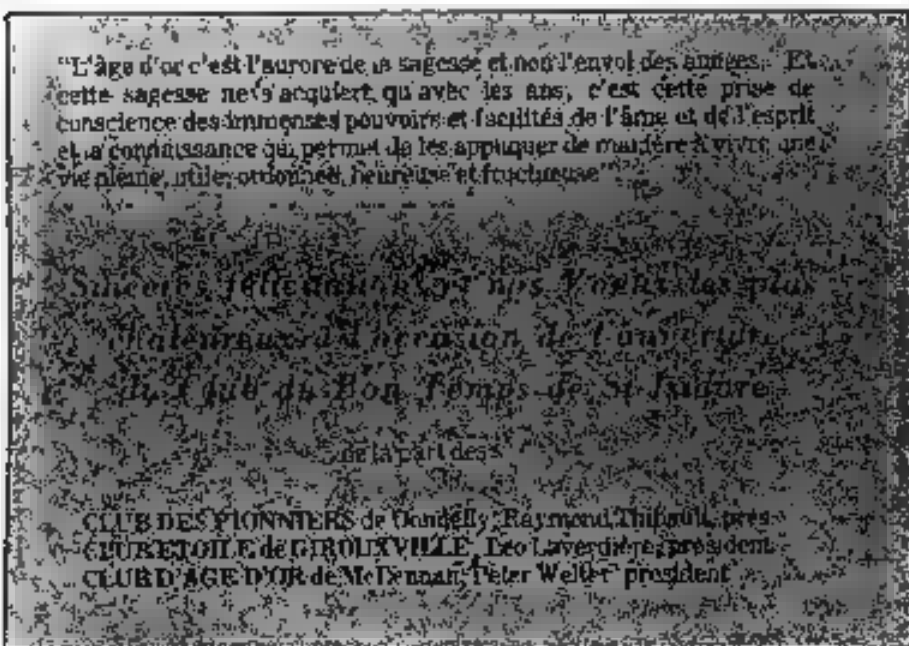 "L'âge d'or c'est l'aurore de la sagesse et non l'envol des années. Et
cette sagesse ne s'acquiert qu'avec les ans, c'est cette prise de
conscience des immenses pouvoirs et facilités de l'âme et de l'esprit
et la connaissance qui permet de les appliquer de manière à vivre une
vie pleine, utile, ordonnée, heureuse et fructueuse"
Sincères félicitations et nos Voeux les plus
chaleureux à l'occasion de l'ouverture
du Club du Bon Temps de St Isidore
de la part des
CLUB DES PIONNIERS de Donnelly, Raymond Thibault, prés.
CLUB ETOILE de GIROUXVILLE, Léo Laverdière, président
CLUB D'AGE D'OR de McLennan, Peter Welter président